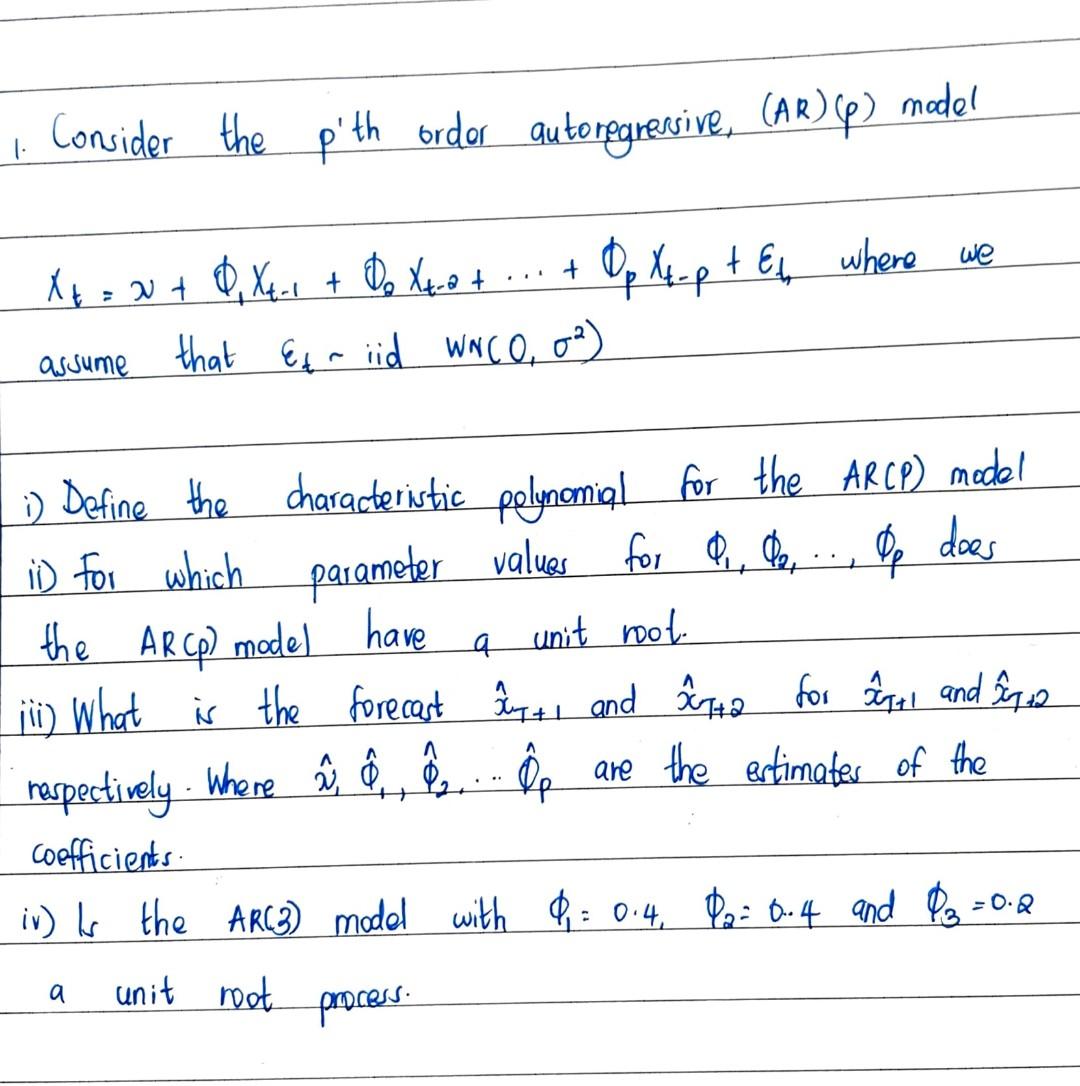 1. Consider the p'th order autoregressive, (AR)(p) model
X_t = ν + Φ_1 X_{t-1} + Φ_2 X_{t-2} + ... + Φ_p X_{t-p} + ε_t, where we
assume that ε_t ~ iid WN(0, σ²)
i) Define the characteristic polynomial for the AR(P) model
ii) For which parameter values for Φ_1, Φ_2, ..., Φ_p does
the AR(p) model have a unit root.
iii) What is the forecast x̂_{T+1} and x̂_{T+2} for x̂_{T+1} and x̂_{T+2}
respectively. Where ν̂, Φ̂_1, Φ̂_2, ... Φ̂_p are the estimates of the
coefficients.
iv) Is the AR(3) model with Φ_1 = 0.4, Φ_2 = 0.4 and Φ_3 = 0.2
a unit root process.